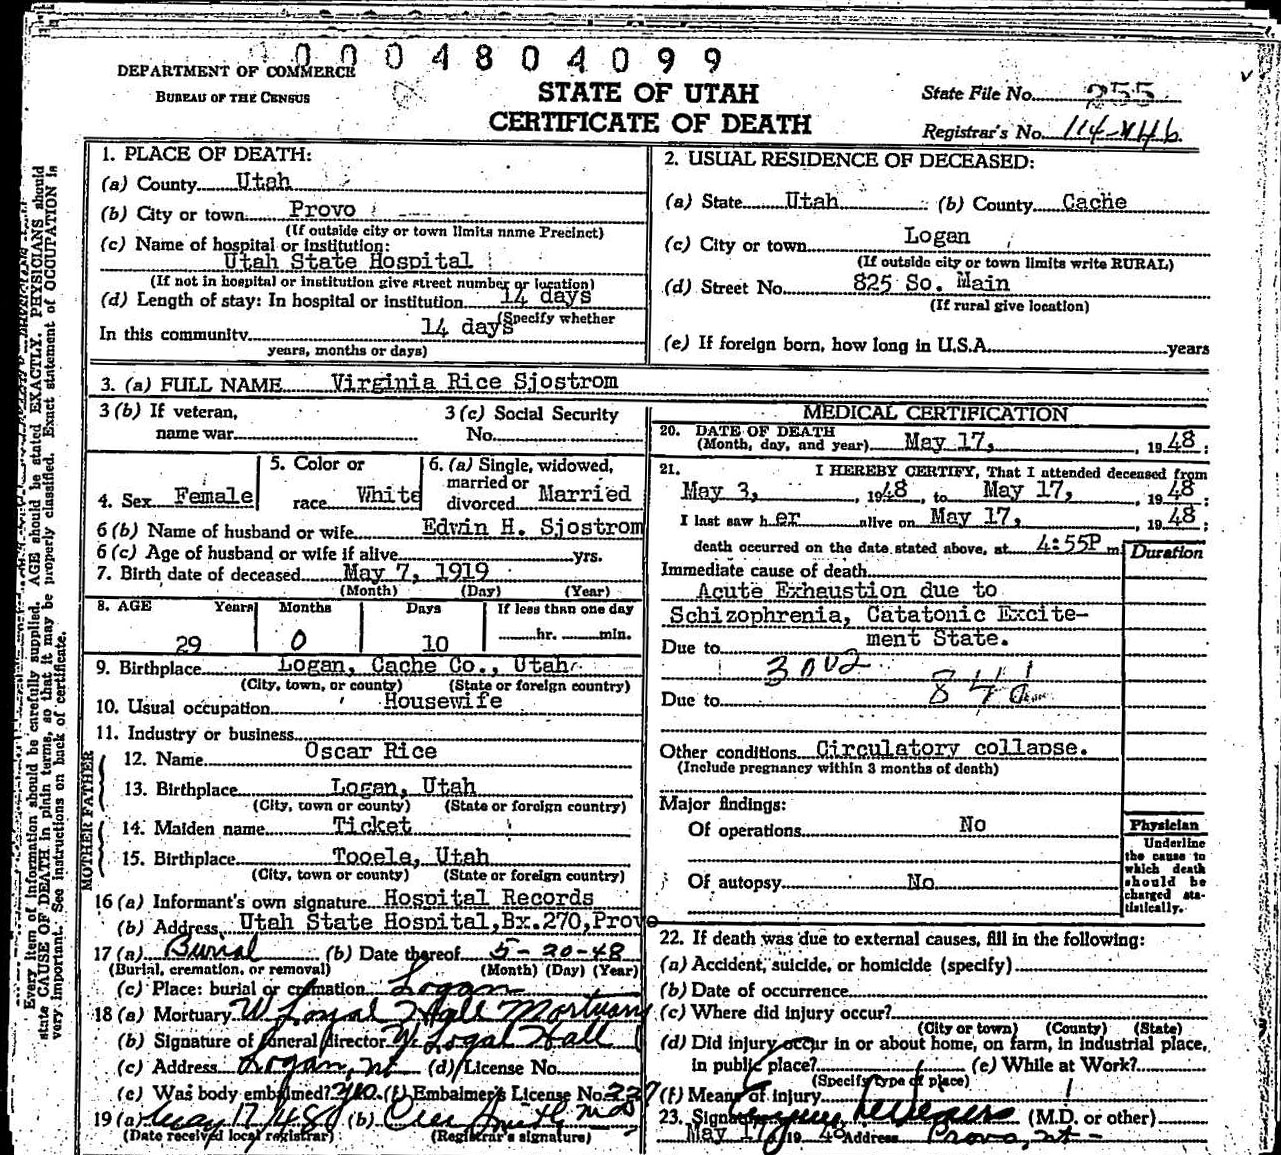 0004804099
DEPARTMENT OF COMMERCE
BUREAU OF THE CENSUS
STATE OF UTAH
CERTIFICATE OF DEATH
State File No. 255
Registrar's No. 114-
1. PLACE OF DEATH:
(a) County Utah
(b) City or town Provo
(If outside city or town limits name Precinct)
(c) Name of hospital or institution:
Utah State Hospital
(If not in hospital or institution give street number or location)
(d) Length of stay: In hospital or institution 14 days
(Specify whether
In this community 14 days
years, months or days)
2. USUAL RESIDENCE OF DECEASED:
(a) State Utah (b) County Cache
(c) City or town Logan
(If outside city or town limits write RURAL)
(d) Street No. 825 So. Main
(If rural give location)
(e) If foreign born, how long in U.S.A. years
3. (a) FULL NAME Virginia Rice Sjostrom
3 (b) If veteran, name war
3 (c) Social Security No.
4. Sex Female
5. Color or race White
6. (a) Single, widowed, married or divorced Married
6 (b) Name of husband or wife Edwin H. Sjostrom
6 (c) Age of husband or wife if alive yrs.
7. Birth date of deceased May 7, 1919
(Month) (Day) (Year)
8. AGE Years Months Days If less than one day
29 0 10 hr. min.
9. Birthplace Logan, Cache Co., Utah
(City, town, or county) (State or foreign country)
10. Usual occupation Housewife
11. Industry or business
FATHER
12. Name Oscar Rice
13. Birthplace Logan, Utah
(City, town or county) (State or foreign country)
MOTHER
14. Maiden name Ticket
15. Birthplace Tooele, Utah
(City, town or county) (State or foreign country)
16 (a) Informant's own signature Hospital Records
(b) Address Utah State Hospital, Bx. 270, Provo
17 (a) Burial (b) Date thereof 5-20-48
(Burial, cremation, or removal) (Month) (Day) (Year)
(c) Place: burial or cremation Logan
18 (a) Mortuary W. Loyal Hall Mortuary
(b) Signature of funeral director W. Loyal Hall
(c) Address Logan, Ut (d) License No.
(e) Was body embalmed? (f) Embalmer's License No. 227
19 (a) May 17 48 (b) Smith MD
(Date received local registrar) (Registrar's signature)
MEDICAL CERTIFICATION
20. DATE OF DEATH
(Month, day, and year) May 17, 1948:
21. I HEREBY CERTIFY, That I attended deceased from
May 3, 1948, to May 17, 1948:
I last saw her alive on May 17, 1948:
death occurred on the date stated above, at 4:55P m
Duration
Immediate cause of death
Acute Exhaustion due to
Schizophrenia, Catatonic Excite-
ment State.
Due to
3002
841
Due to
Other conditions Circulatory collapse.
(Include pregnancy within 3 months of death)
Major findings:
Of operations No
Of autopsy No
Physician
Underline the cause to which death should be charged statistically.
22. If death was due to external causes, fill in the following:
(a) Accident, suicide, or homicide (specify)
(b) Date of occurrence
(c) Where did injury occur?
(City or town) (County) (State)
(d) Did injury occur in or about home, on farm, in industrial place,
in public place? (e) While at Work?
(Specify type of place)
(f) Means of injury
23. Signature (M.D. or other)
May 17, 1948 Address Provo, Ut-
Every item of information should be carefully supplied. AGE should be stated EXACTLY. PHYSICIANS should
state CAUSE OF DEATH in plain terms, so that it may be properly classified. Exact statement of OCCUPATION is
very important. See instructions on back of certificate.